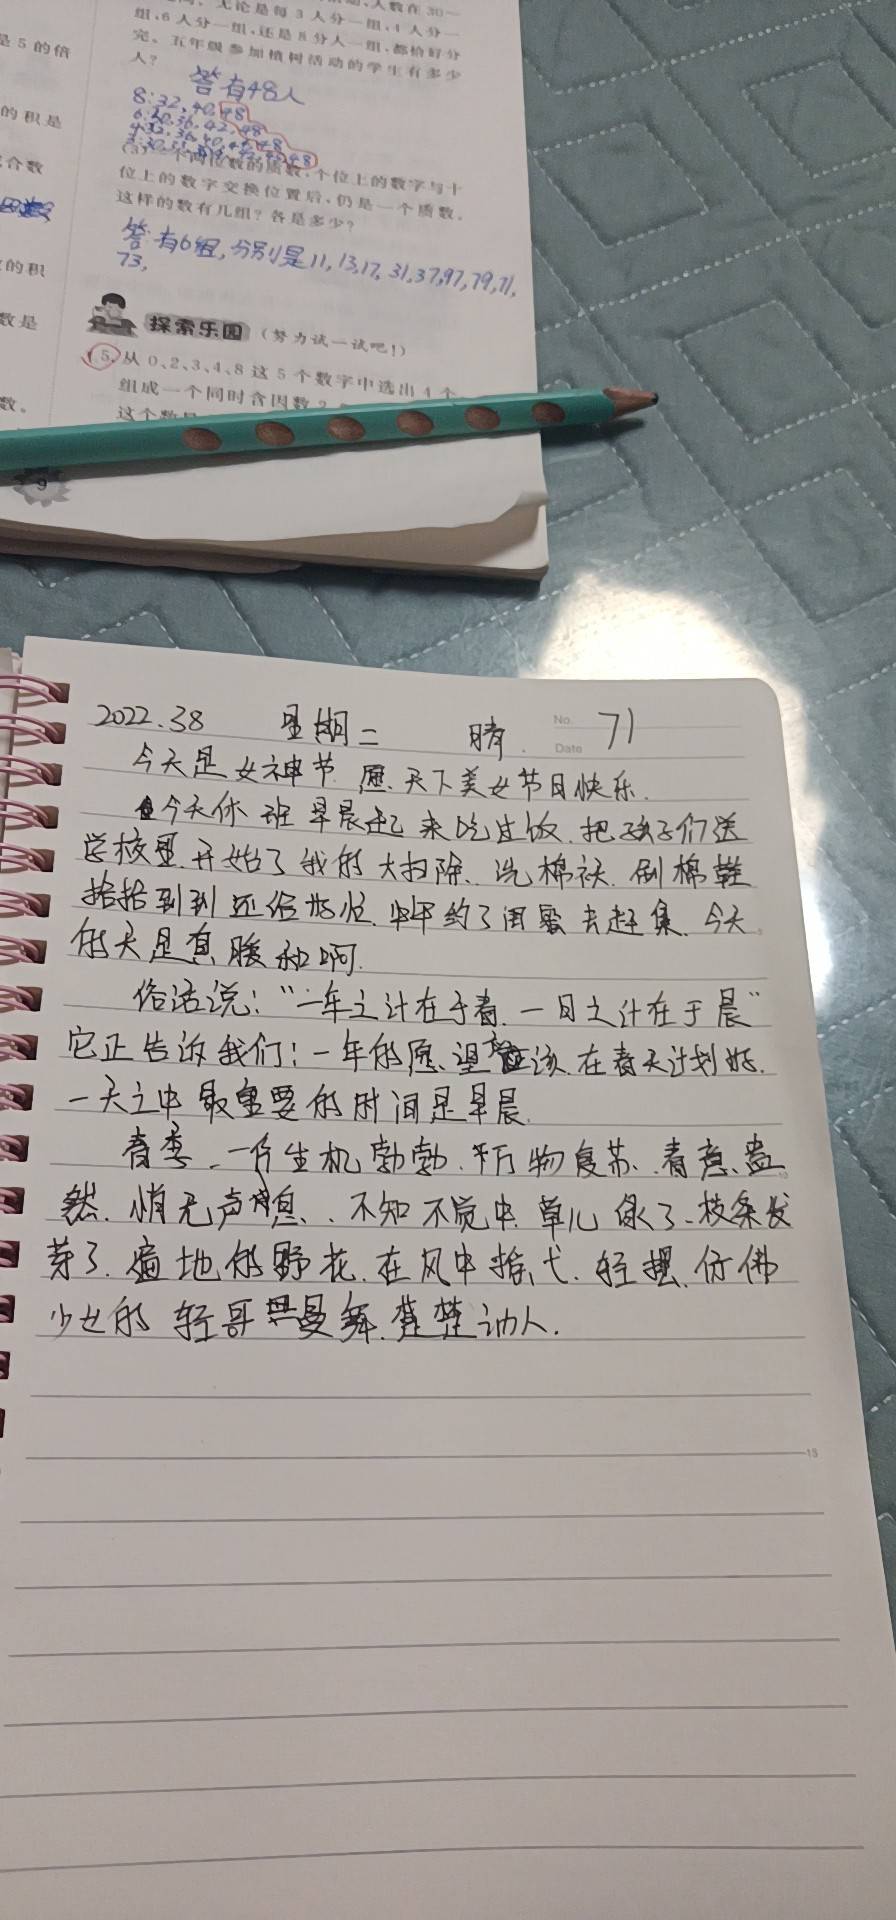 是5的倍
的积是
合数
的积
数是
数。
无论是每3人分一组,4人分一
组,6人分一组,还是8分人一组,都恰好分
完。五年级参加植树活动的学生有多少
人?
答有48人
8:32,40,48
一个两位数的质数,个位上的数字与十
位上的数字交换位置后,仍是一个质数。
这样的数有几组?各是多少?
答:有6组,分别是11,13,17,31,37,97,79,71,
73,
探索乐园(努力试一试吧!)
5.从0、2、3、4、8这5个数字中选出4个
组成一个同时含因数
9
2022.38 星期二 晴. No. 71
Date
今天是女神节 愿.天下美女节日快乐.
今天休班 早晨起来吃过饭.把孩子们送
学校里.开始了我的大扫除、洗棉袄.刷棉鞋
拾拾到到 还给好忙. 中午约了闺蜜去赶集. 今天
的天是真暖和啊.
俗话说:“一年之计在于春.一日之计在于晨”
它正告诉我们:一年的愿望应该.在春天计划好.
一天之中最重要的时间是早晨.
春季.一片生机勃勃.万物复苏.春意盎
然.悄无声息..不知不觉中.草儿绿了.枝条发
芽了.遍地的野花.在风中摇弋.轻摆.仿佛
少女的轻哥曼舞.楚楚动人.
15